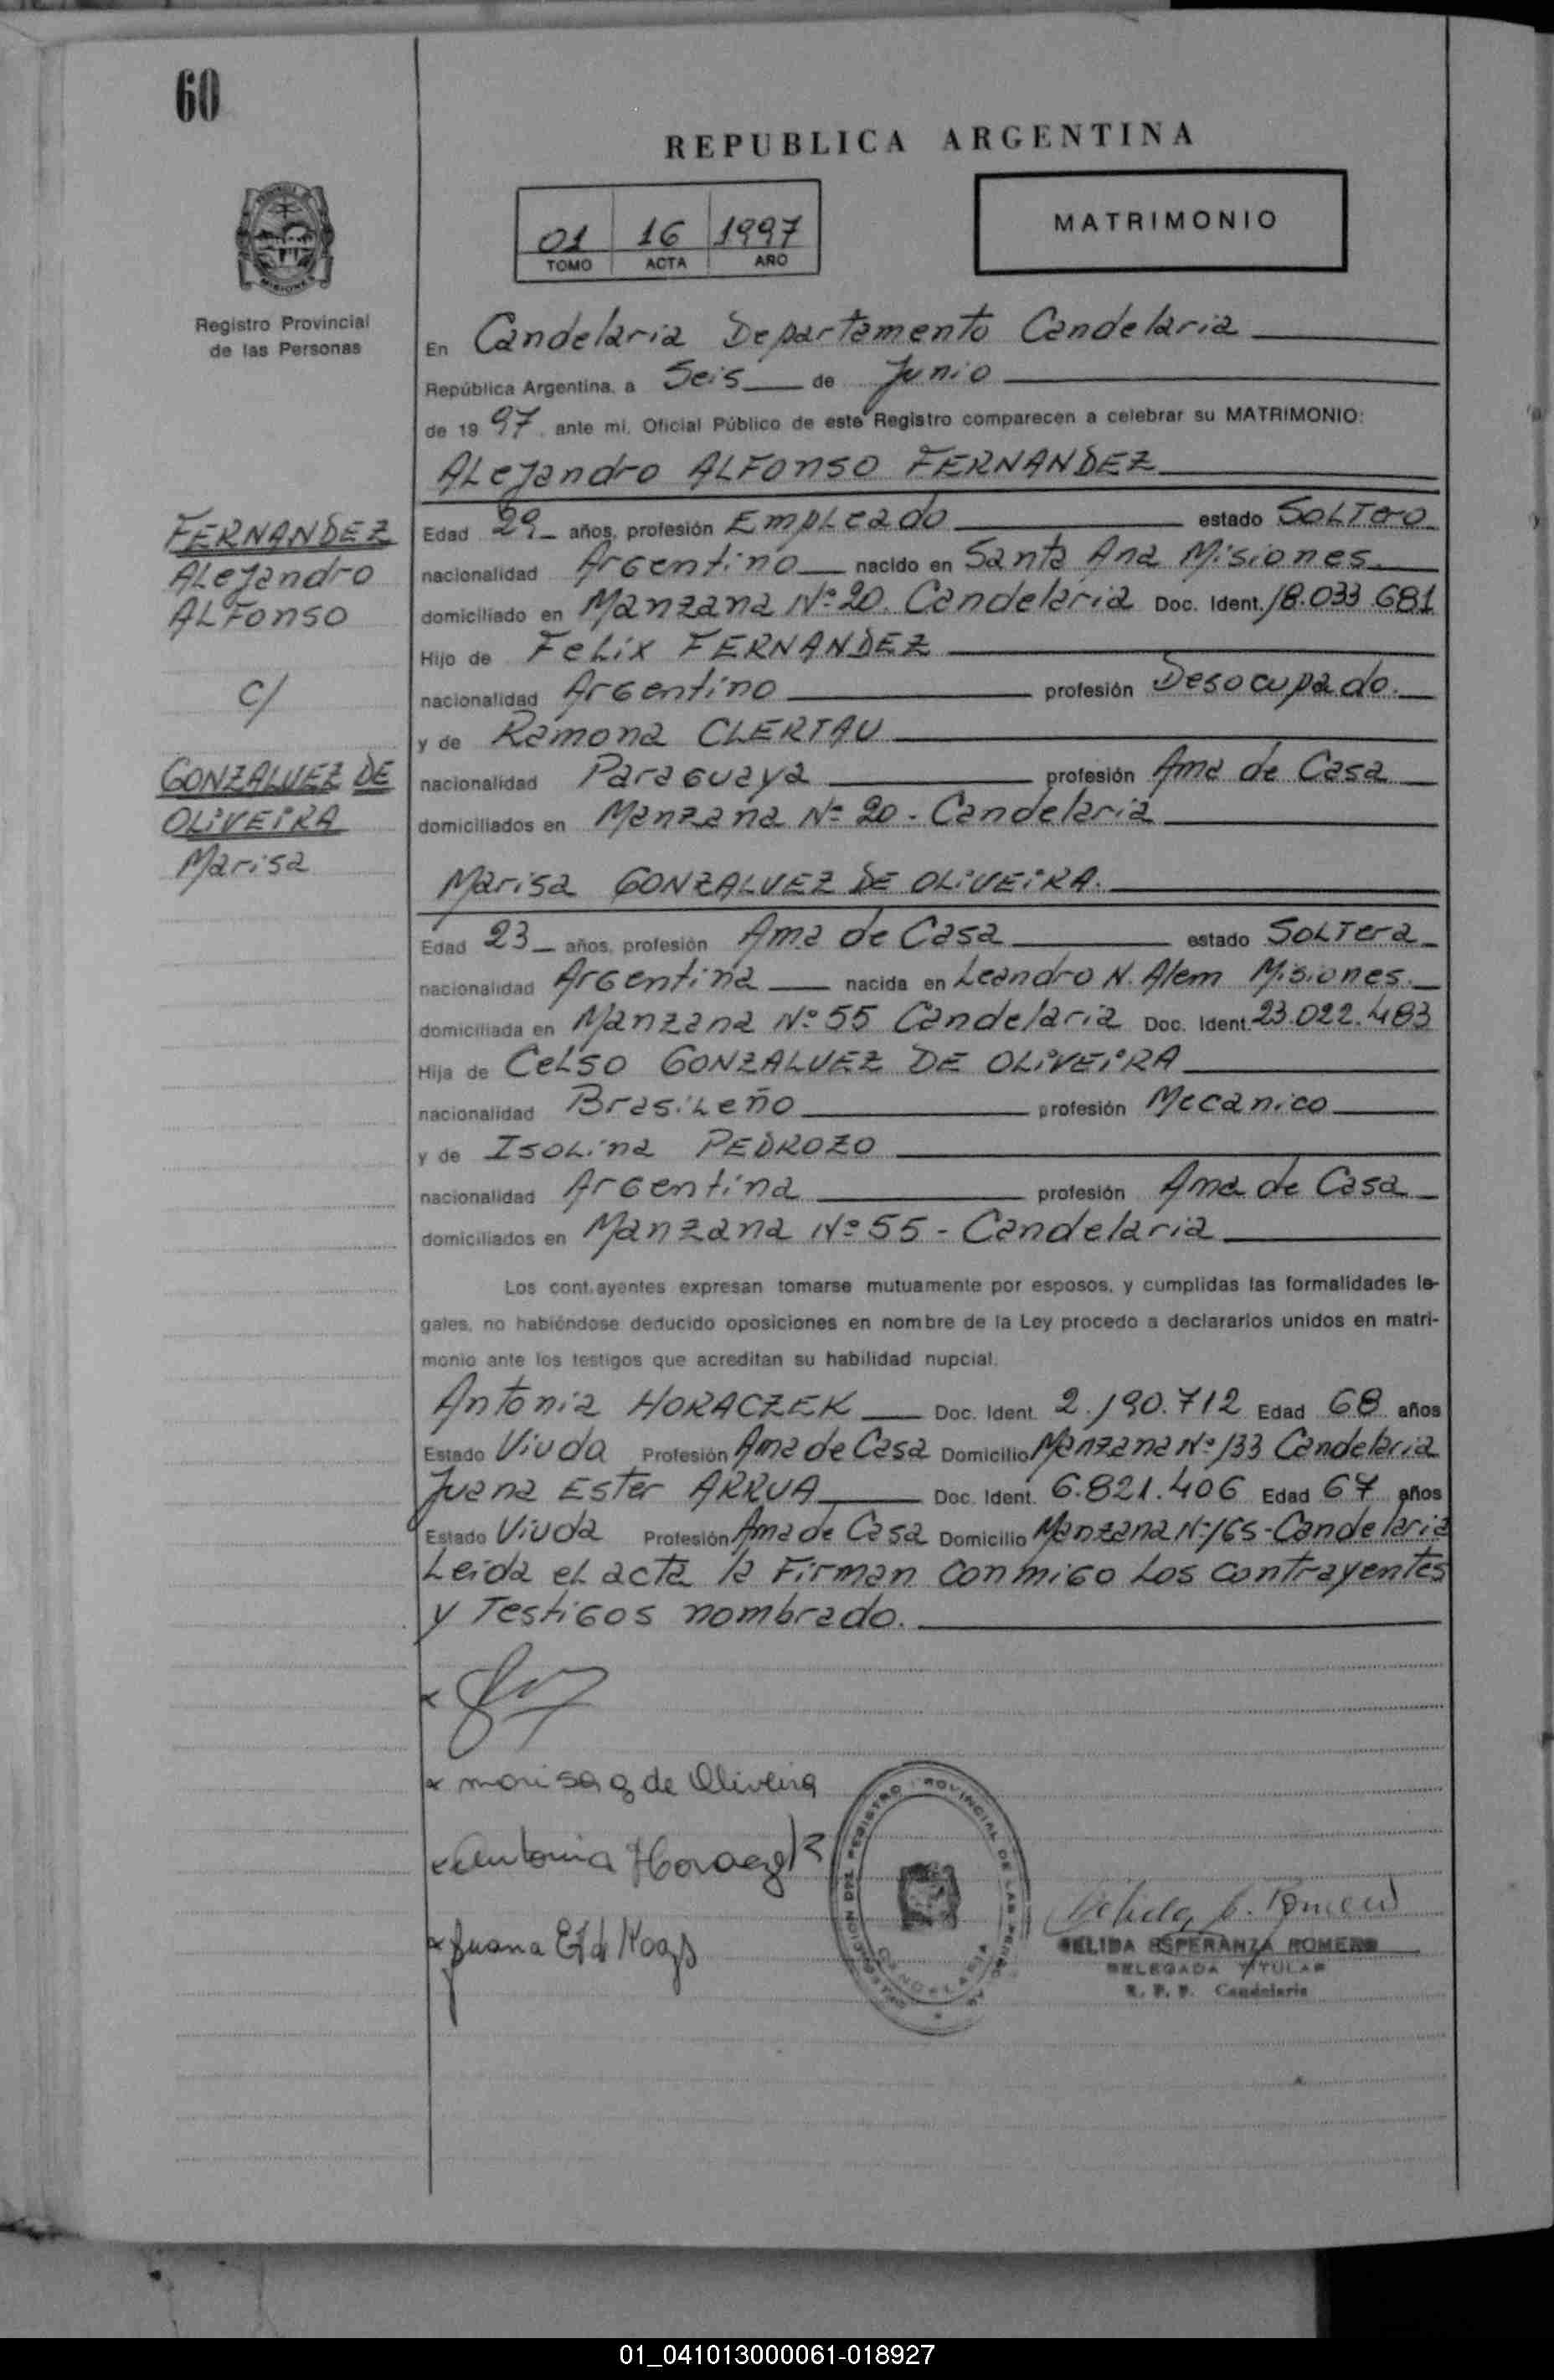 60
REPUBLICA ARGENTINA
01 16 1997
TOMO ACTA AÑO
MATRIMONIO
MISIONES
Registro Provincial
de las Personas
En Candelaria Departamento Candelaria
República Argentina, a Seis de Junio
de 19 97 ante mi, Oficial Público de este Registro comparecen a celebrar su MATRIMONIO:
ALeJandro ALFonso FERNANDEZ
FERNANDEZ
ALeJandro
ALFonso
C/
GONZALVEZ DE
OLiVEiRA
Marisa
Edad 29 años, profesión EmpLeado estado SoLTero
nacionalidad Argentino nacido en Santa Ana Misiones.
domiciliado en Manzana Nº 20. Candelaria Doc. Ident. 18.033.681
Hijo de FeLix FERNANDEZ
nacionalidad Argentino profesión Desocupado.
y de Ramona CLERTAU
nacionalidad Paraguaya profesión Ama de Casa
domiciliados en Manzana Nº 20 - Candelaria
Marisa GONZALVEZ DE OLiVEiRA.
Edad 23 años, profesión Ama de Casa estado SoLTera
nacionalidad Argentina nacida en Leandro N. Alem Misiones.
domiciliada en Manzana Nº 55 Candelaria Doc. Ident. 23.022.483
Hija de CeLSo GONZALVEZ DE OLiVEiRA
nacionalidad BrasiLeño profesión Mecanico
y de ISoLina PEDROZO
nacionalidad Argentina profesión Ama de Casa
domiciliados en Manzana Nº 55 - Candelaria
Los contrayentes expresan tomarse mutuamente por esposos, y cumplidas las formalidades le-
gales, no habiéndose deducido oposiciones en nombre de la Ley procedo a declararlos unidos en matri-
monio ante los testigos que acreditan su habilidad nupcial.
Antonia HORACZEK Doc. Ident. 2.190.712 Edad 68 años
Estado Viuda Profesión Ama de Casa Domicilio Manzana Nº 133 Candelaria
Juana Ester ARRUA Doc. Ident. 6.821.406 Edad 67 años
Estado Viuda Profesión Ama de Casa Domicilio Manzana Nº 165 - Candelaria
Leida eL acta la Firman conmigo Los contrayentes
y Testigos nombrado.
x
x marisa g de Oliveira
x Antonia Horaczek
x Juana E
DELEGACION DEL REGISTRO PROVINCIAL DE LAS PERSONAS
CANDELARIA
CELIDA ESPERANZA ROMERO
DELEGADA TITULAR
R. P. P. Candelaria
01_041013000061-018927